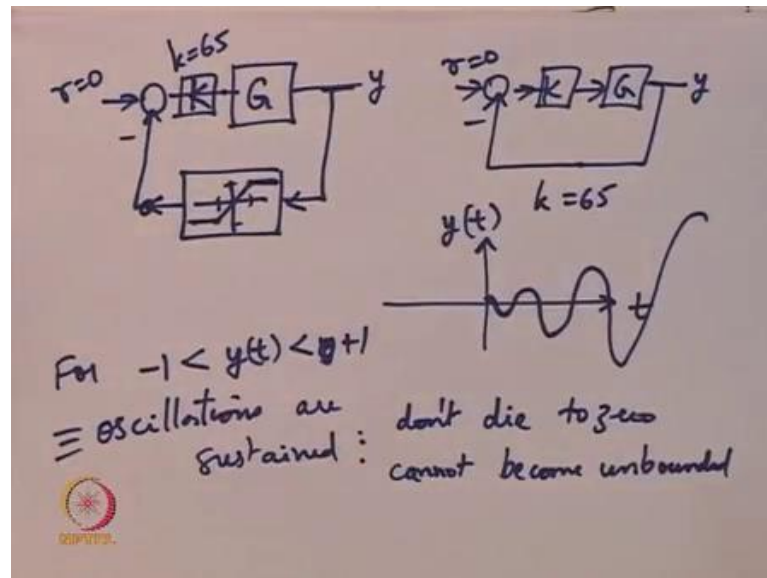 k=65
r=0
K
G
y
-
r=0
K
G
y
-
k=65
y(t)
t
For -1 < y(t) < +1
≡ oscillations are
sustained : don't die to zero
cannot become unbounded
NPTEL